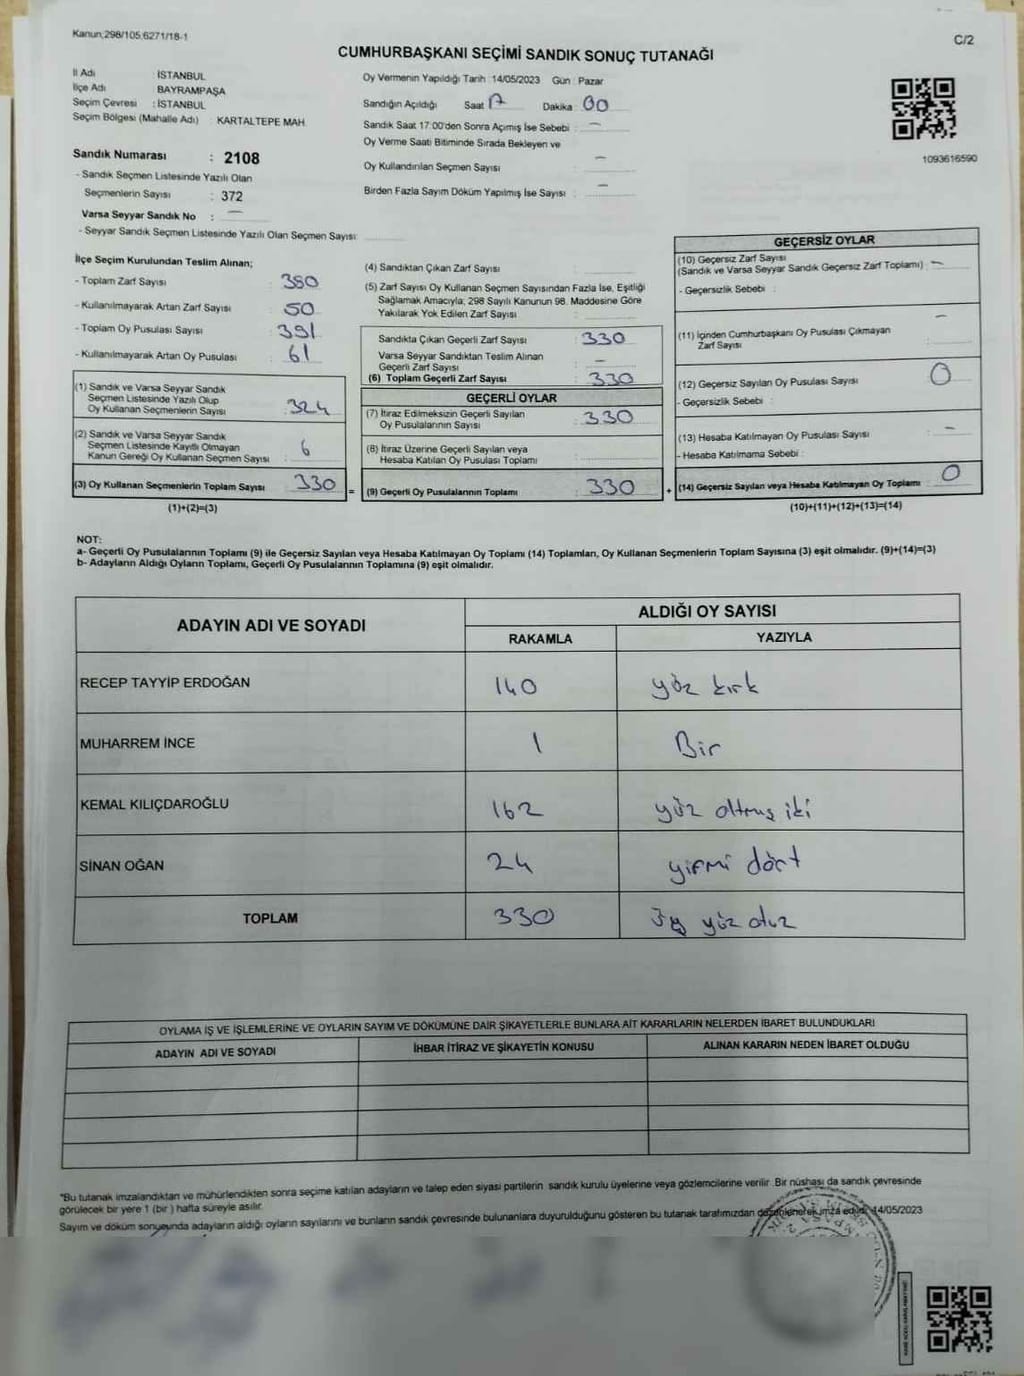 Kanun;298/105;6271/18-1
C/2
CUMHURBAŞKANI SEÇİMİ SANDIK SONUÇ TUTANAĞI
İl Adı İSTANBUL
İlçe Adı BAYRAMPAŞA
Seçim Çevresi : İSTANBUL
Seçim Bölgesi (Mahalle Adı) : KARTALTEPE MAH.
Sandık Numarası : 2108
- Sandık Seçmen Listesinde Yazılı Olan
Seçmenlerin Sayısı : 372
Varsa Seyyar Sandık No : —
- Seyyar Sandık Seçmen Listesinde Yazılı Olan Seçmen Sayısı:
Oy Vermenin Yapıldığı Tarih : 14/05/2023 Gün : Pazar
Sandığın Açıldığı Saat 17 Dakika : 00
Sandık Saat 17:00'den Sonra Açımış İse Sebebi : —
Oy Verme Saati Bitiminde Sırada Bekleyen ve
Oy Kullandırılan Seçmen Sayısı —
Birden Fazla Sayım Döküm Yapılmış İse Sayısı : —
1093616590
İlçe Seçim Kurulundan Teslim Alınan;
- Toplam Zarf Sayısı : 380
- Kullanılmayarak Artan Zarf Sayısı : 50
- Toplam Oy Pusulası Sayısı : 391
- Kullanılmayarak Artan Oy Pusulası : 61
(1) Sandık ve Varsa Seyyar Sandık
Seçmen Listesinde Yazılı Olup
Oy Kullanan Seçmenlerin Sayısı : 324
(2) Sandık ve Varsa Seyyar Sandık
Seçmen Listesinde Kayıtlı Olmayan
Kanun Gereği Oy Kullanan Seçmen Sayısı : 6
(3) Oy Kullanan Seçmenlerin Toplam Sayısı : 330
(1)+(2)=(3)
(4) Sandıktan Çıkan Zarf Sayısı :
(5) Zarf Sayısı Oy Kullanan Seçmen Sayısından Fazla İse, Eşitliği
Sağlamak Amacıyla; 298 Sayılı Kanunun 98. Maddesine Göre
Yakılarak Yok Edilen Zarf Sayısı :
Sandıkta Çıkan Geçerli Zarf Sayısı : 330
Varsa Seyyar Sandıktan Teslim Alınan
Geçerli Zarf Sayısı : —
(6) Toplam Geçerli Zarf Sayısı : 330
GEÇERLİ OYLAR
(7) İtiraz Edilmeksizin Geçerli Sayılan
Oy Pusulalarının Sayısı : 330
(8) İtiraz Üzerine Geçerli Sayılan veya
Hesaba Katılan Oy Pusulası Toplamı :
= (9) Geçerli Oy Pusulalarının Toplamı : 330
GEÇERSİZ OYLAR
(10) Geçersiz Zarf Sayısı
(Sandık ve Varsa Seyyar Sandık Geçersiz Zarf Toplamı) : —
- Geçersizlik Sebebi :
(11) İçinden Cumhurbaşkanı Oy Pusulası Çıkmayan
Zarf Sayısı : —
(12) Geçersiz Sayılan Oy Pusulası Sayısı : 0
- Geçersizlik Sebebi :
(13) Hesaba Katılmayan Oy Pusulası Sayısı : —
- Hesaba Katılmama Sebebi :
+ (14) Geçersiz Sayılan veya Hesaba Katılmayan Oy Toplamı : 0
(10)+(11)+(12)+(13)=(14)
NOT:
a- Geçerli Oy Pusulalarının Toplamı (9) ile Geçersiz Sayılan veya Hesaba Katılmayan Oy Toplamı (14) Toplamları, Oy Kullanan Seçmenlerin Toplam Sayısına (3) eşit olmalıdır. (9)+(14)=(3)
b- Adayların Aldığı Oyların Toplamı, Geçerli Oy Pusulalarının Toplamına (9) eşit olmalıdır.
ADAYIN ADI VE SOYADI ALDIĞI OY SAYISI
RAKAMLA YAZIYLA
RECEP TAYYİP ERDOĞAN 140 yüz kırk
MUHARREM İNCE 1 Bir
KEMAL KILIÇDAROĞLU 162 yüz altmış iki
SİNAN OĞAN 24 yirmi dört
TOPLAM 330 üç yüz otuz
OYLAMA İŞ VE İŞLEMLERİNE VE OYLARIN SAYIM VE DÖKÜMÜNE DAİR ŞİKAYETLERLE BUNLARA AİT KARARLARIN NELERDEN İBARET BULUNDUKLARI
ADAYIN ADI VE SOYADI İHBAR İTİRAZ VE ŞİKAYETİN KONUSU ALINAN KARARIN NEDEN İBARET OLDUĞU
*Bu tutanak imzalandıktan ve mühürlendikten sonra seçime katılan adayların ve talep eden siyasi partilerin sandık kurulu üyelerine veya gözlemcilerine verilir .Bir nüshası da sandık çevresinde
görülecek bir yere 1 (bir ) hafta süreyle asılır.
Sayım ve döküm sonucunda adayların aldığı oyların sayılarını ve bunların sandık çevresinde bulunanlara duyurulduğunu gösteren bu tutanak tarafımızdan düzenlenerek imza edildi. 14/05/2023